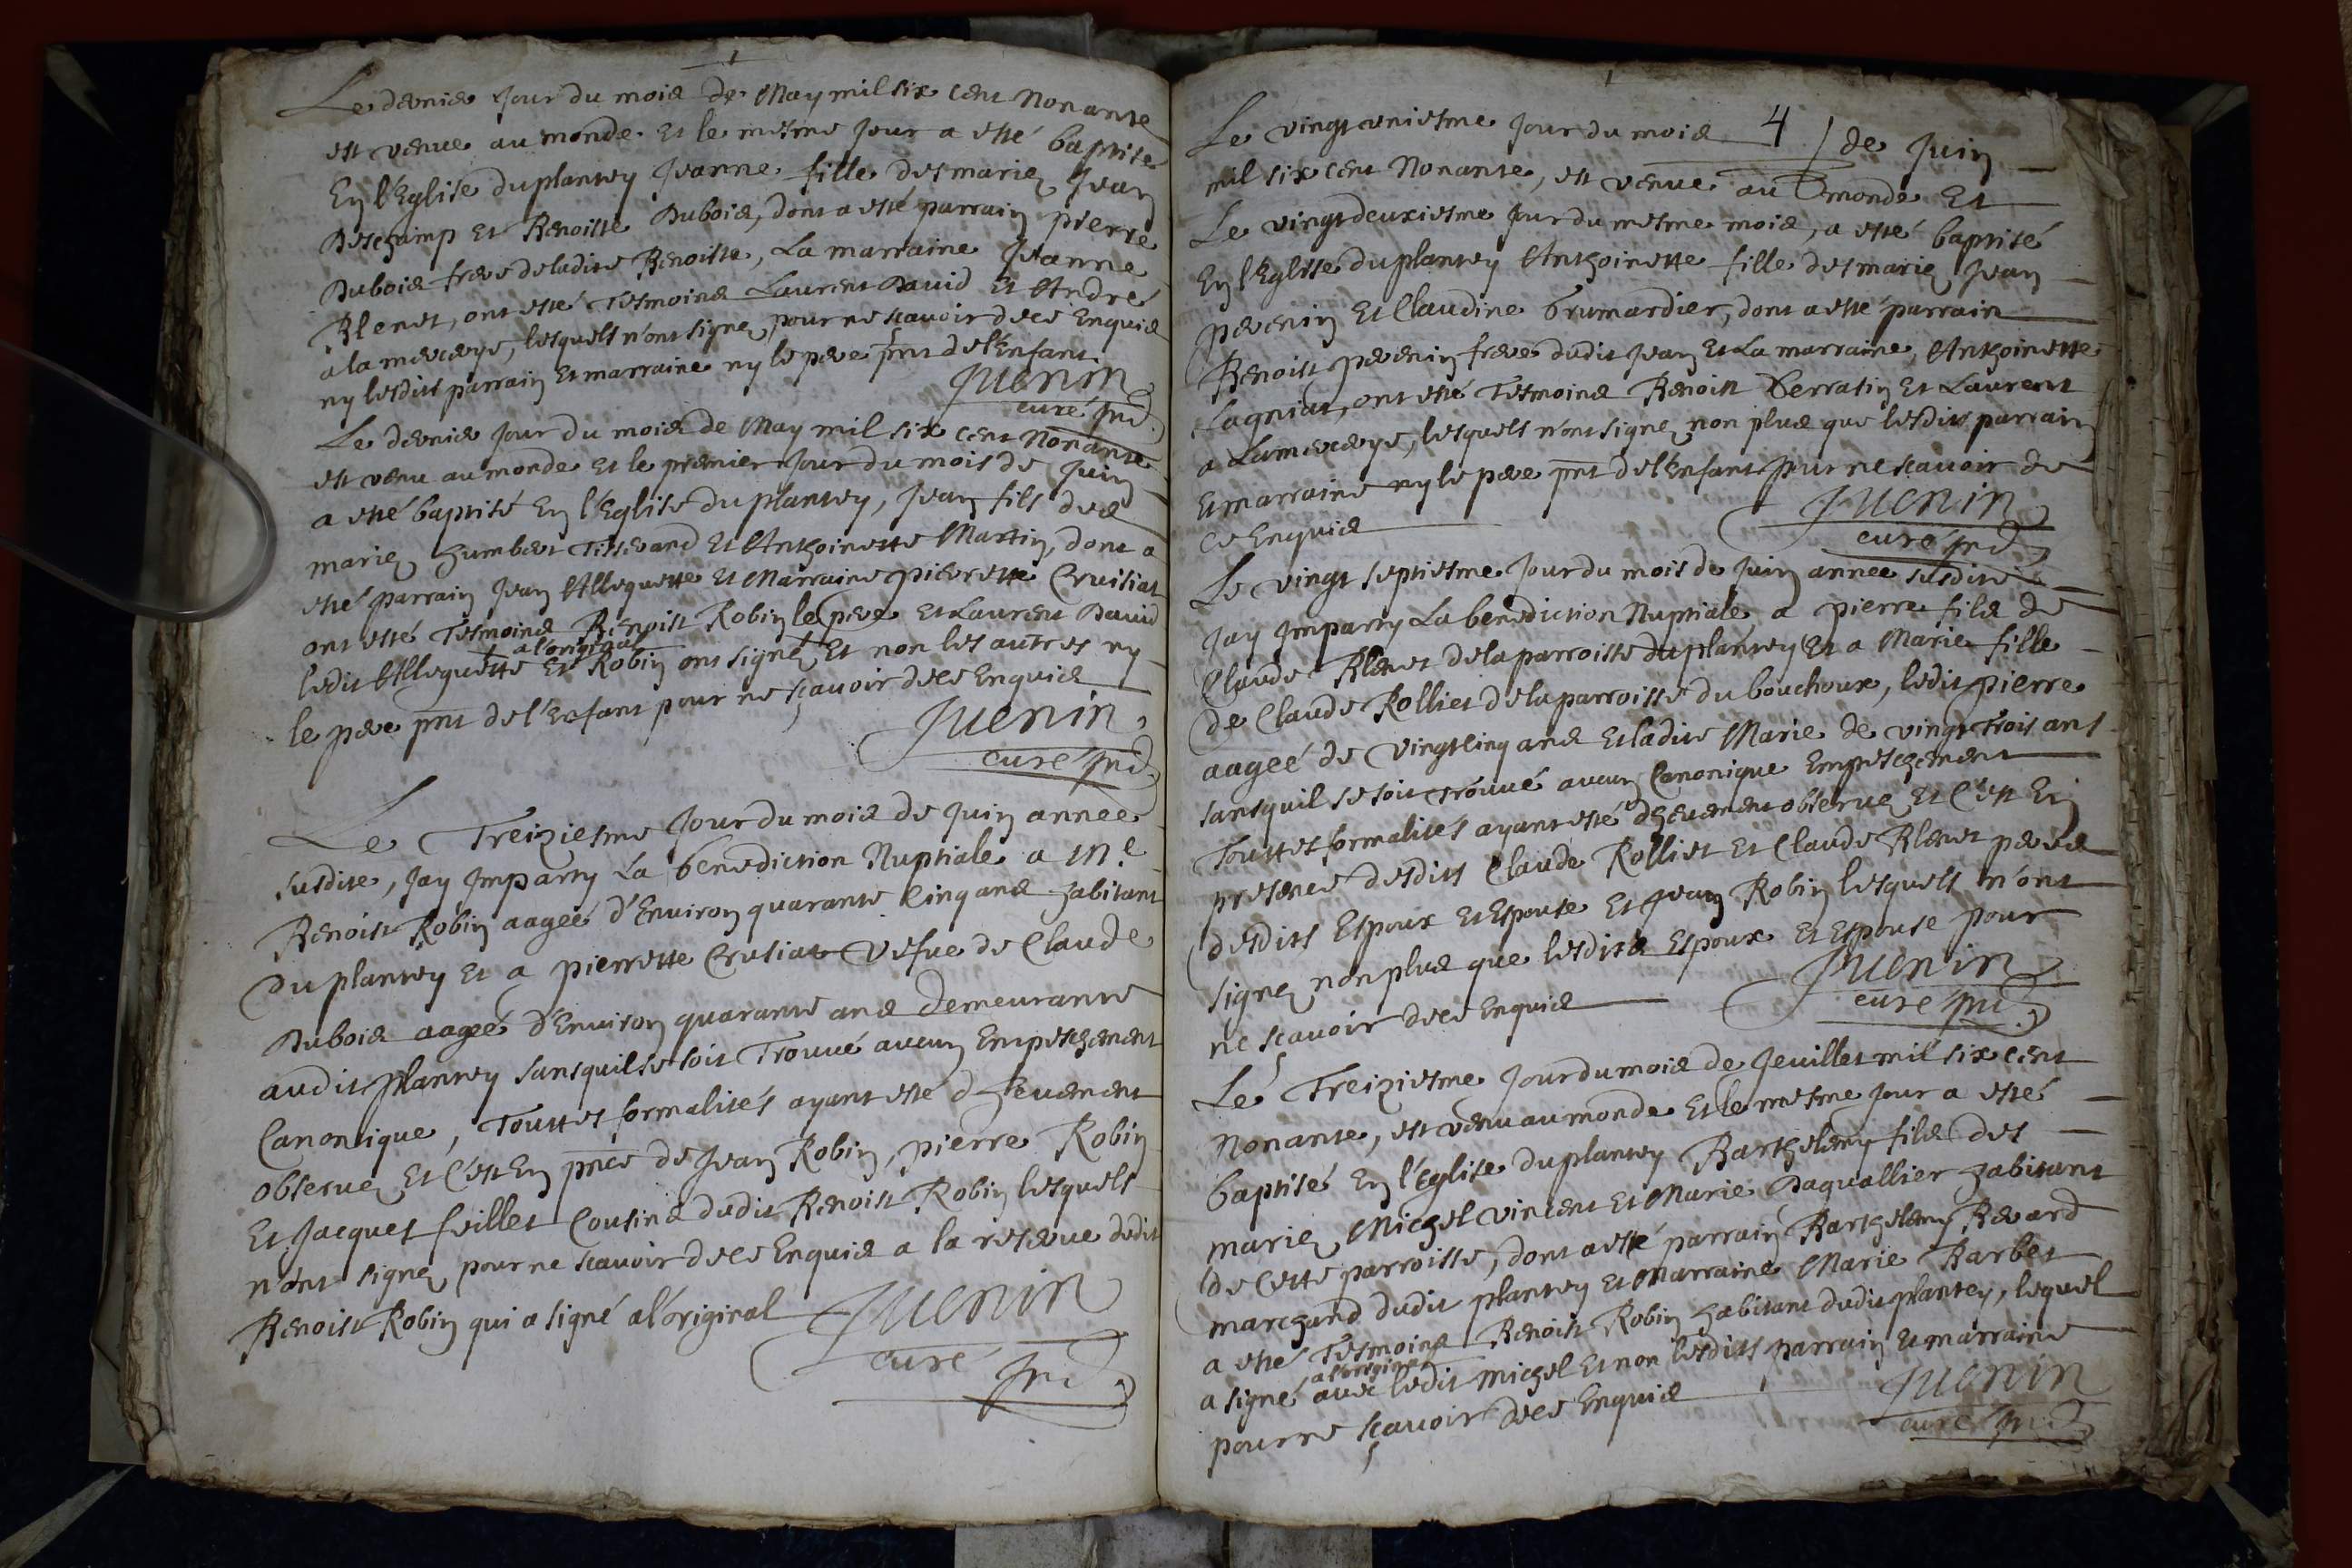 Le dernier Jour du mois de May mil six cent Nonante
est venue au monde et le mesme Jour a esté baptisé
En l'Eglise du plantey Jeanne fille des mariez Jean
Deschamp et Benoiste Dubois, dont a esté parrain pierre
Dubois frere de ladite Benoiste, La marraine Jeanne
Blenet, ont esté Tesmoins Laurent David et André
a la mercerye, lesquels n'ont signez pour ne scavoir de ce Enquis
ny lesdits parrain et marraine ny le pere pnt de l'Enfant
Juenin
curé Ind.
Le dernier Jour du mois de May mil six cent Nonante
est venu au monde et le premier Jour du mois de Juin
a esté baptisé En l'Eglise du plantey, Jean fils des
mariez humbert Tisserand et Anthoinette Martin, dont a
esté parrain Jean Alloquette et Marraine pierrette Cruisiat
ont esté Tesmoins Benoist Robin le pere et Laurent David
ledit Alloquette et Robin ont signé a l'original Et non les autres ny
le pere pnt de l'Enfant pour ne sçavoir de ce Enquis
Juenin
curé Ind.
Le Treiziesme Jour du mois de Juin année
susdite, Jay Imparty La benediction Nuptiale a Me
Benoist Robin aageé d'Environ quarante Cinq ans habitant
Du plantey Et a pierrette Crusiat Vefue de Claude
Dubois aageé d'Environ quarante ans Demeurante
audit plantey sans quil se soit Trouvé aucun Empeschement
Canonique, Touttes formalités ayant esté dheuement
observez Et C'est En pnce de Jean Robin, pierre Robin
Et Jacques feillet Cousins dudit Benoist Robin lesquels
n'ont signez pour ne scavoir de ce Enquis a la reserve dudit
Benoist Robin qui a signé a l'original
Juenin
curé Ind.
4
Le vingt uniesme Jour du mois / de Juin
mil six cent Nonante, est venue au monde Et
Le vingt deuxiesme Jour du mesme mois, a esté baptisé
En l'Eglise du plantey Anthoinette fille des mariez Jean
peverin Et Claudine brumardier, dont a esté parrain
Benoist peverin frere dudit Jean Et La marraine, Anthoinette
Lagniat, ont esté Tesmoins Benoist Verratin Et Laurent
a Lamercerye, lesquels n'ont signez non plus que lesdits parrain
Et marraine ny le pere pnt de l'Enfant pour ne scavoir de
ce Enquis
Juenin
curé Ind.
Le vingt septiesme Jour du mois de Juin année susdite
Jay Imparty La benediction Nuptiale, a pierre fils de
Claude Blenet de la parroisse du plantey Et a Marie fille
de Claude Rolliet de la parroisse du bouchoux, ledit pierre
aageé de Vingt Cinq ans Et ladite Marie de vingt Trois ans
sans quil se soit trouvé aucun Canonique Empeschement
Touttes formalités ayant esté dheuement observez Et C'est En
presence desdits Claude Rolliet Et Claude Blenet peres
desdits Espoux et Espouse Et Jean Robin lesquels n'ont
signez non plus que lesdits Espoux Et Espouse pour
ne sçavoir de ce Enquis
Juenin
curé Ind.
Le Treiziesme Jour du mois de Jeuillet mil six cent
Nonante, est venu au monde Et le mesme Jour a esté
baptisé En l'Eglise du plantey Barthelemy fils des
mariez Michel vincent Et Marie Daquallier habitant
de Cette parroisse, dont a esté parrain Barthelemy Revard
marchand dudit plantey Et Marraine Marie Barbet
a esté Tesmoins Benoist Robin habitant dudit plantey, lequel
a signé a l'original avec ledit Michel Et non lesdits parrain Et marraine
pour ne sçavoir de ce Enquis
Juenin
curé Ind.